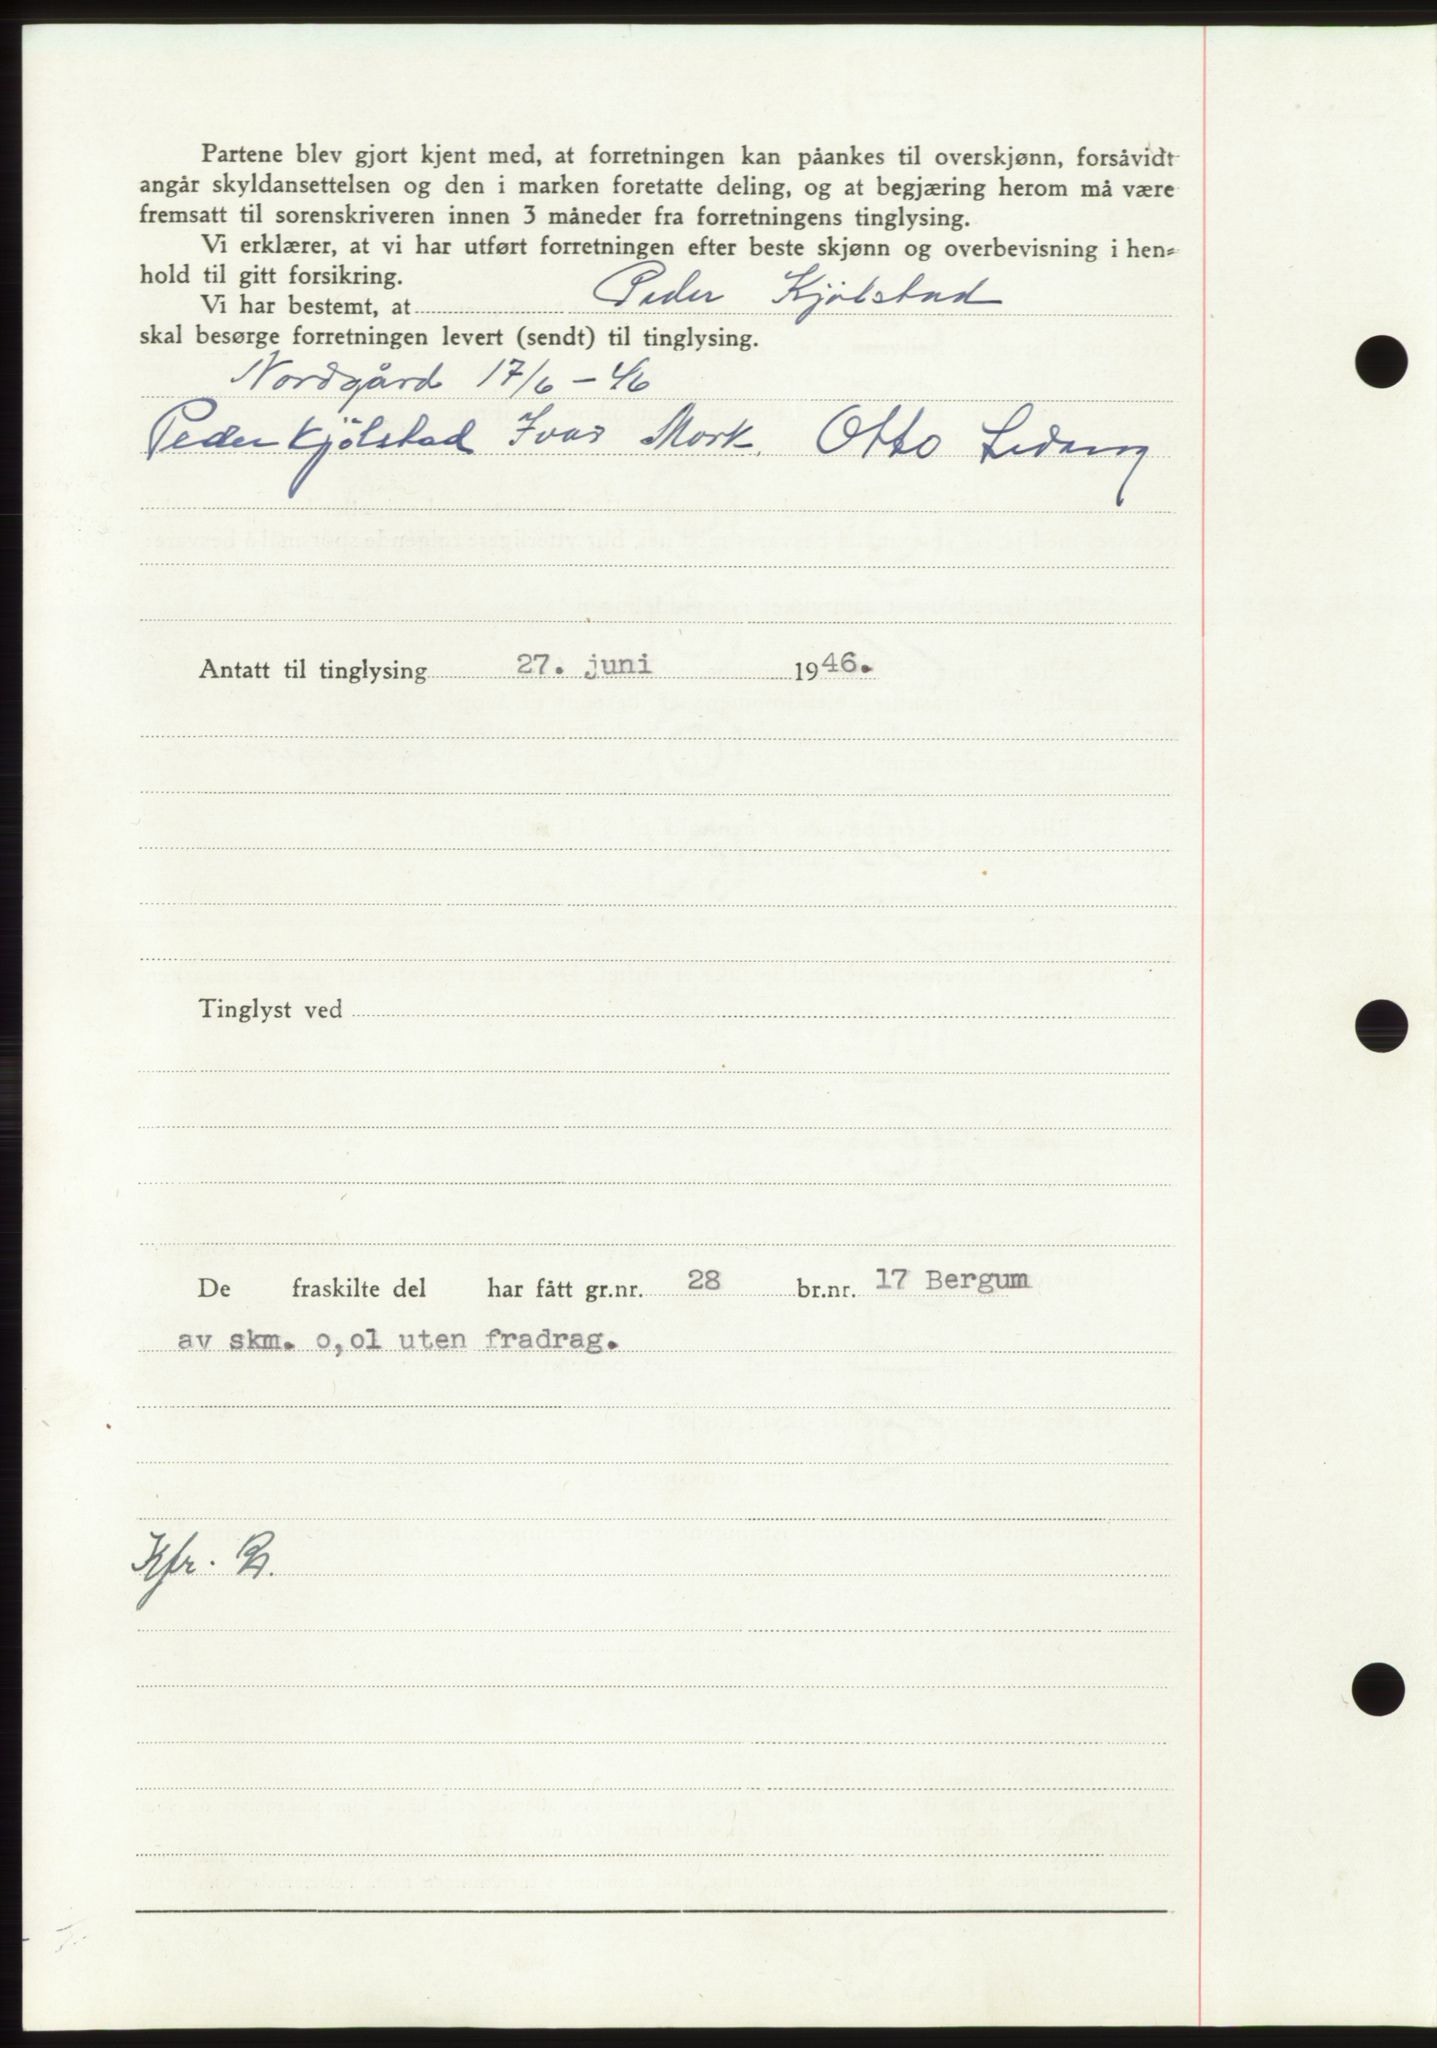 Partene blev gjort kjent med, at forretningen kan påankes til overskjønn, forsåvidt
angår skyldansettelsen og den i marken foretatte deling, og at begjæring herom må være
fremsatt til sorenskriveren innen 3 måneder fra forretningens tinglysing.
Vi erklærer, at vi har utført forretningen efter beste skjønn og overbevisning i hen-
hold til gitt forsikring.
Vi har bestemt, at Peder Kjölstad
skal besørge forretningen levert (sendt) til tinglysing.
Nordgård 17/6 - 46
Peder Kjölstad Ivar Mork. Otto
Antatt til tinglysing 27. juni 1946.
Tinglyst ved
De fraskilte del har fått gr.nr. 28 br.nr. 17 Bergum
av skm. o,ol uten fradrag.
Kfr.